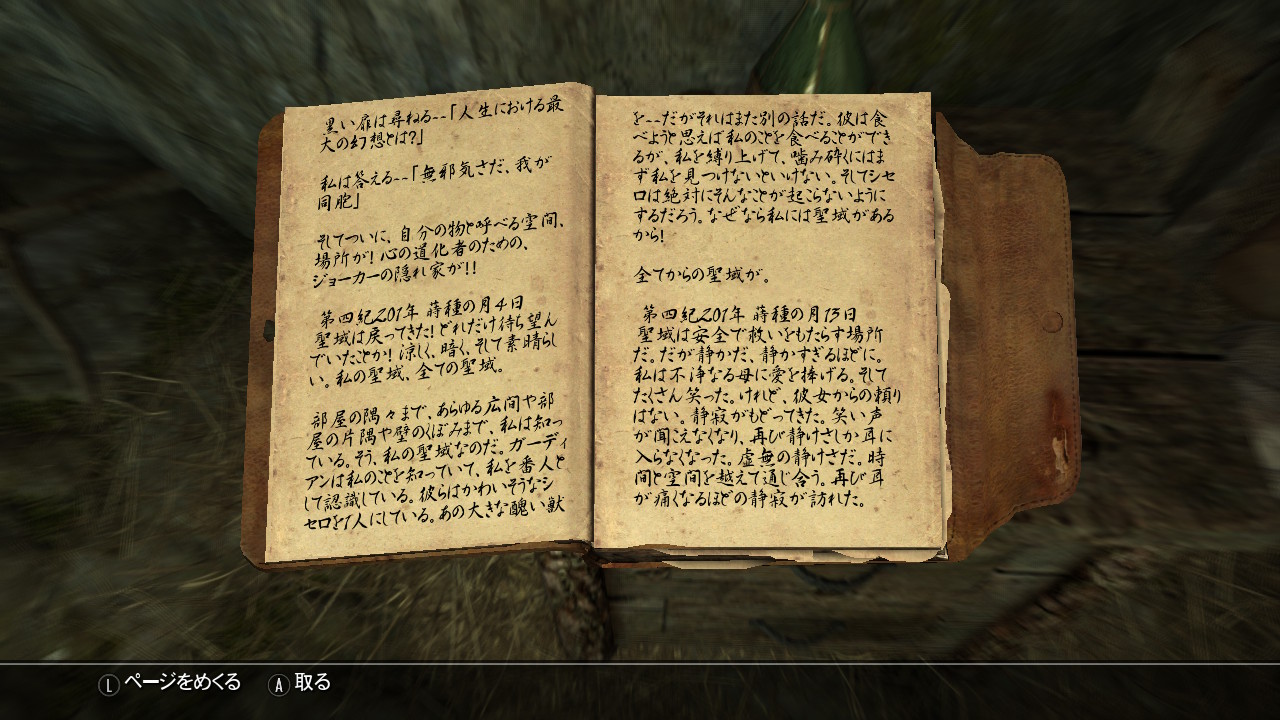 黒い扉は尋ねる--「人生における最
大の幻想とは?」
私は答える--「無邪気さだ、我が
同胞」
そしてついに、自分の物と呼べる空間、
場所が! 心の道化者のための、
ジョーカーの隠れ家が!!
第四紀201年 蒔種の月4日
聖域は戻ってきた! どれだけ待ち望ん
でいたことか! 涼しく、暗く、そして素晴らし
い。私の聖域、全ての聖域。
部屋の隅々まで、あらゆる広間や部
屋の片隅や壁のくぼみまで、私は知っ
ている。そう、私の聖域なのだ。ガーディ
アンは私のことを知っていて、私を番人と
して認識している。彼らはかわいそうなシ
セロを1人にしている。あの大きな醜い獣
を--だがそれはまた別の話だ。彼は食
べようと思えば私のことを食べることができ
るが、私を縛り上げて、噛み砕くにはま
ず私を見つけないといけない。そしてシセ
ロは絶対にそんなことが起こらないように
するだろう。なぜなら私には聖域がある
から!
全てからの聖域が。
第四紀201年 蒔種の月13日
聖域は安全で救いをもたらす場所
だ。だが静かだ、静かすぎるほどに。
私は不浄なる母に愛を捧げる。そして
たくさん笑った。けれど、彼女からの頼り
はない。静寂がもどってきた。笑い声
が聞こえなくなり、再び静けさしか耳に
入らなくなった。虚無の静けさだ。時
間と空間を越えて通じ合う。再び耳
が痛くなるほどの静寂が訪れた。
L ページをめくる A 取る